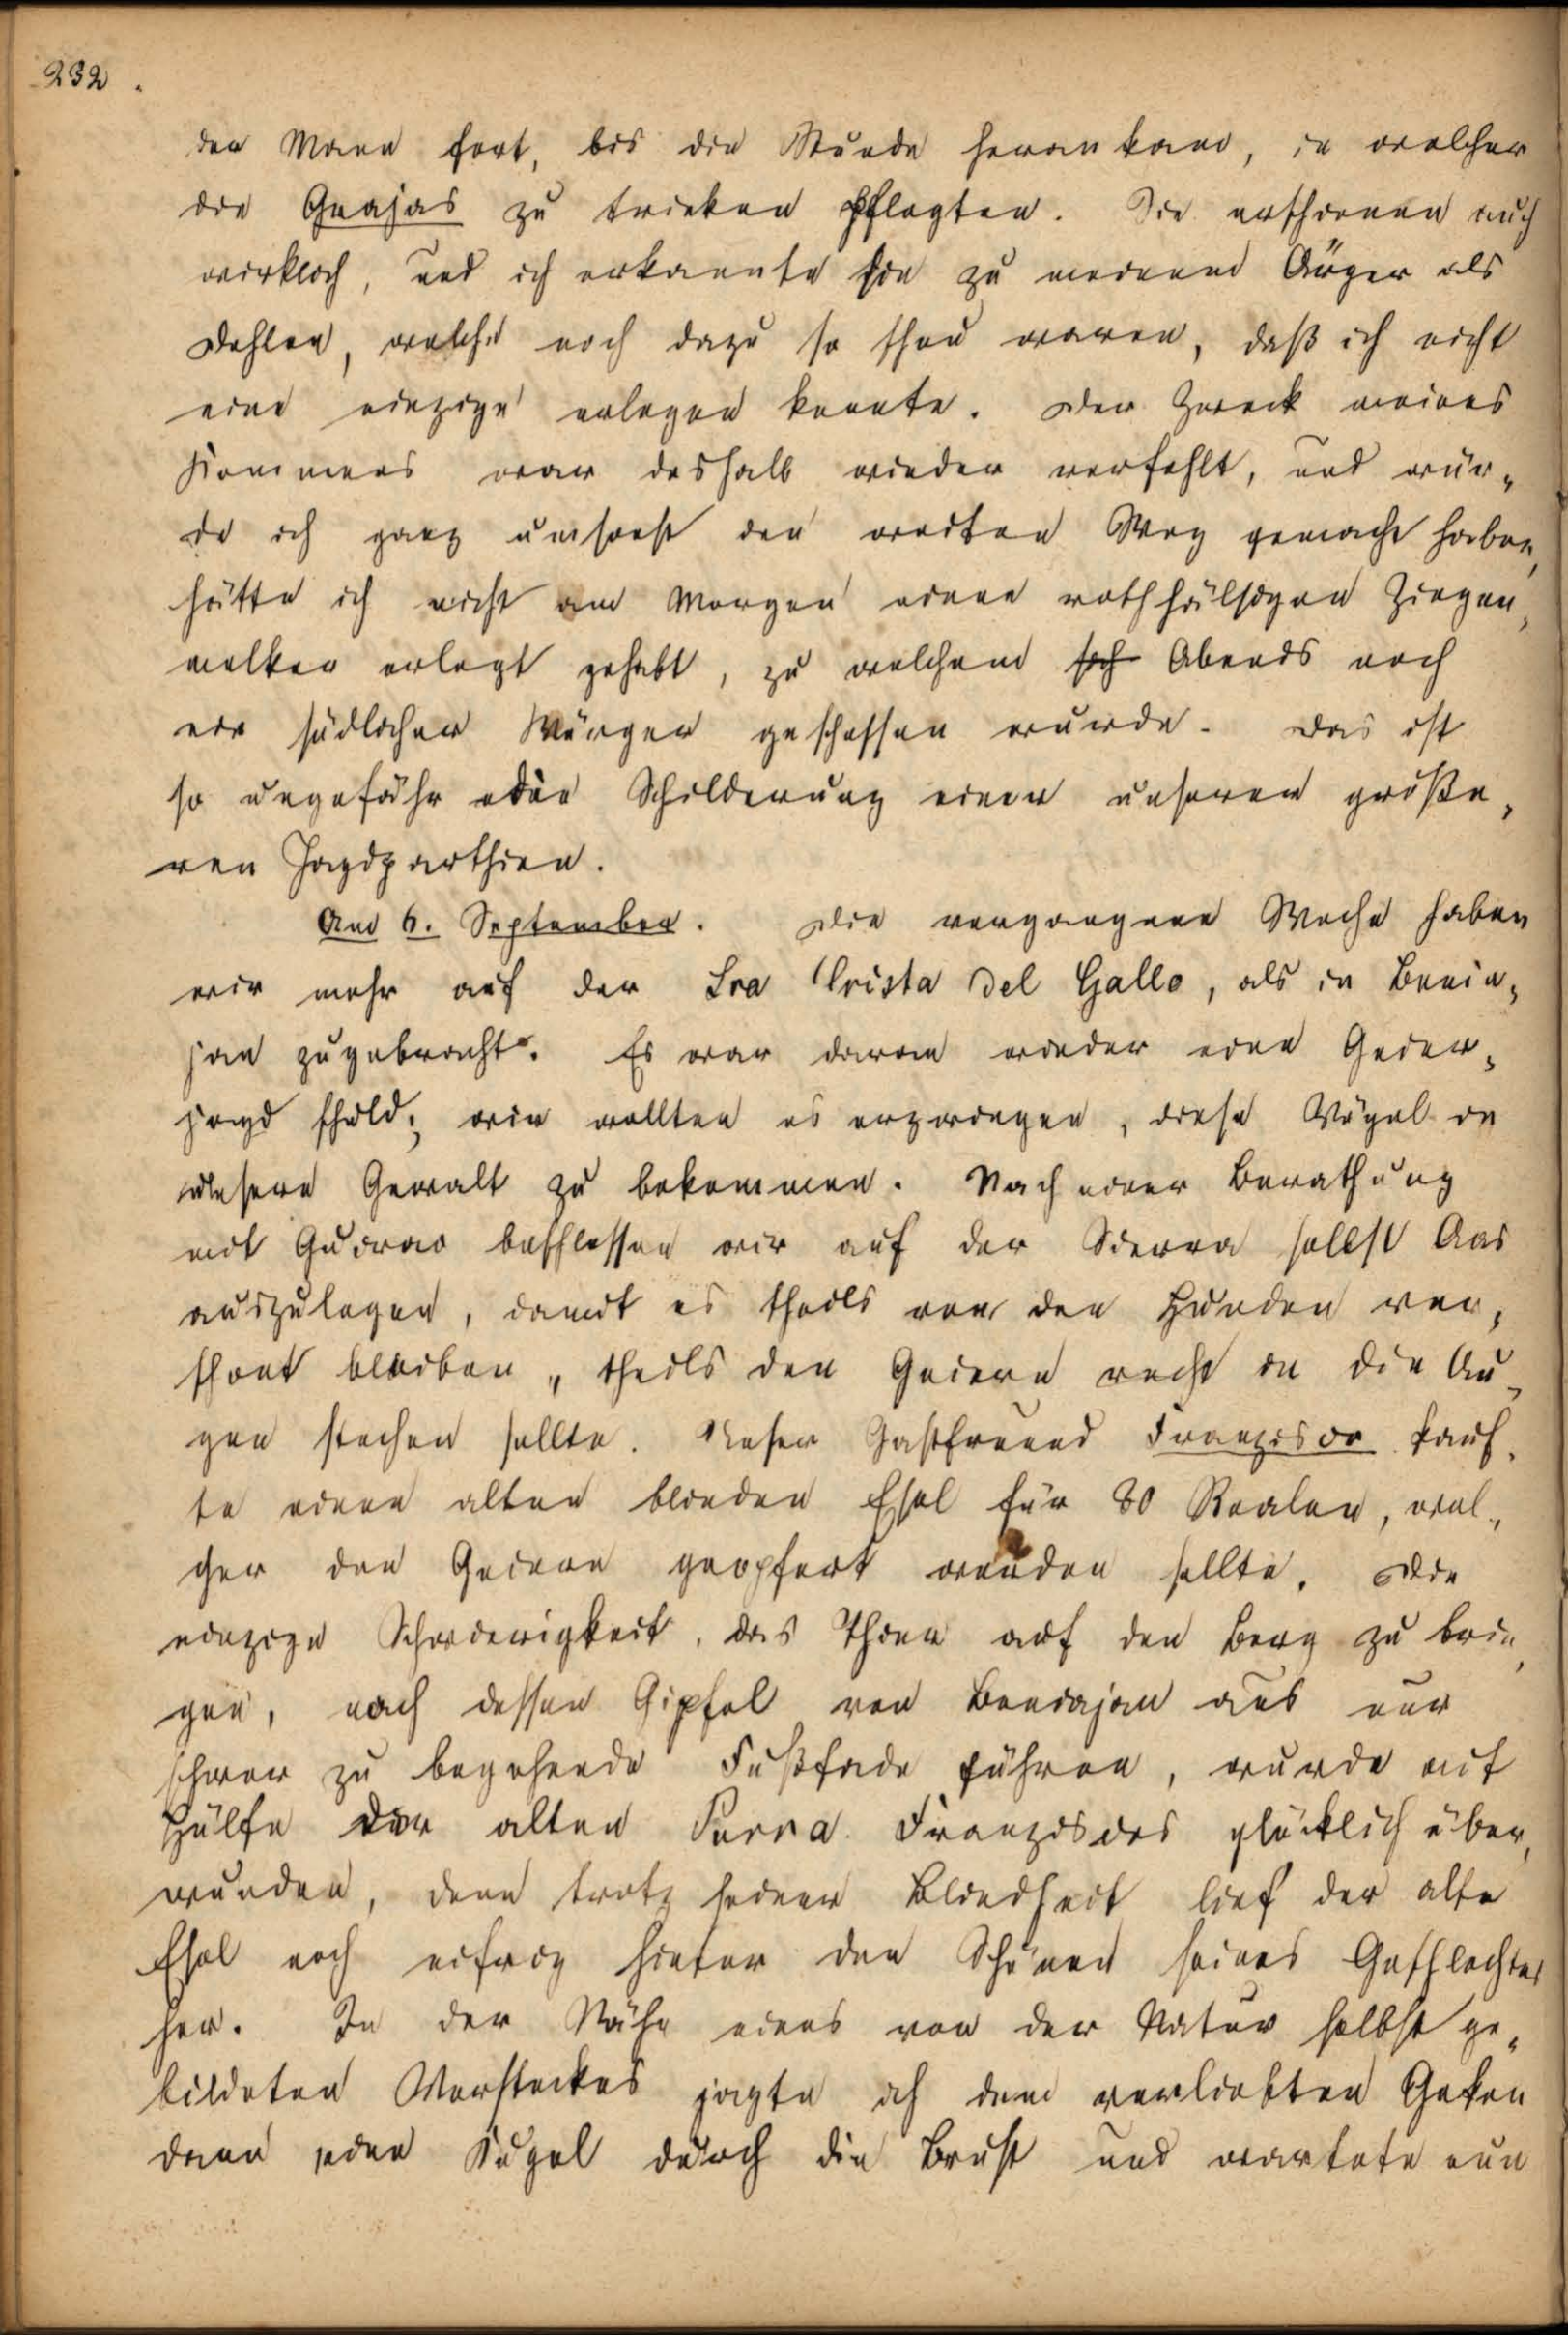 232.
der Mann fort, bis die Stunde herankam, in welcher
die Grajas zu trinken pflegten. Sie erschienen auch
wirklich, und ich erkannte sie zu meinem Ärger als
Dohlen, welche noch dazu so scheu waren, daß ich nicht
eine einzige erlegen konnte. Der Zweck meines
Kommens war deshalb wieder verfehlt, und wür-
de ich ganz umsonst den weiten Weg gemacht haben,
hätte ich nicht am Morgen einen rothhälsigen Ziegen-
melker erlegt gehabt, zu welchem sich Abends noch
ein südlicher Würger geschossen wurde. Das ist
so ungefähr die Schilderung einer unserer größe-
ren Jagdparthien.
Am 6. September. Die vergangene Woche haben
wir mehr auf der Sra Crista del Gallo, als in Benia-
jan zugebracht. Es war daran wieder eine Geier-
jagd schuld; wir wollten es erzwingen, diese Vögel in
unsere Gewalt zu bekommen. Nach einer Berathung
mit Guirao beschlossen wir auf der Sierra selbst Aas
auszulegen, damit es theils von den Hunden ver-
schont bleiben, theils den Geiern recht in die Au-
gen stechen sollte. Unser Gastfreund Franzisco kauf-
te einen alten blinden Esel für 80 Realen, wel-
cher den Geiern geopfert werden sollte. Die
einzige Schwierigkeit, das Thier auf den Berg zu brin-
gen, nach dessen Gipfel von Beniajan aus nur
schwer zu begehende Fußfade führen, wurde mit
Hülfe der alten Perra Franziscos glücklich über-
wunden, denn trotz seiner Blindheit lief der alte
Esel noch eifrig hinter den Schönen seines Geschlechtes
her. In der Nähe eines von der Natur selbst ge-
bildeten Versteckes jagte ich dem verliebten Gecken
dann eine Kugel durch die Brust und wartete nun